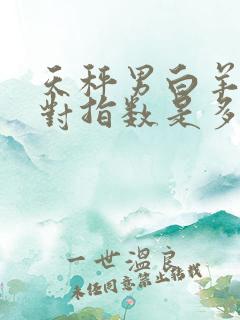 天秤男白羊
對指数是多
一世温良
未经同意禁止转载